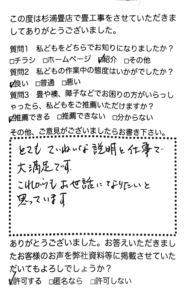 この度は杉浦畳店で畳工事をさせていただきま
してありがとうございました。
質問1 私どもをどちらでお知りになりましたか?
□チラシ □ホームページ ☑紹介 □その他
質問2 私どもの作業中の態度はいかがでしたか?
☑良い □普通 □悪い
質問3 畳や襖、障子などでお困りの方がいらっし
ゃったら、私どもをご推薦いただけますか?
☑推薦できる □推薦できない □分からない
その他、ご意見がございましたらお書き下さい。
とても ていねいな説明と仕事で
大満足です
これからもお世話になりたいと
思っています
ありがとうございました。お答えいただきまし
たお客様のお声を弊社資料等に掲載させていた
だいてもよろしでしょうか?
☑許可する □匿名なら □許可しない